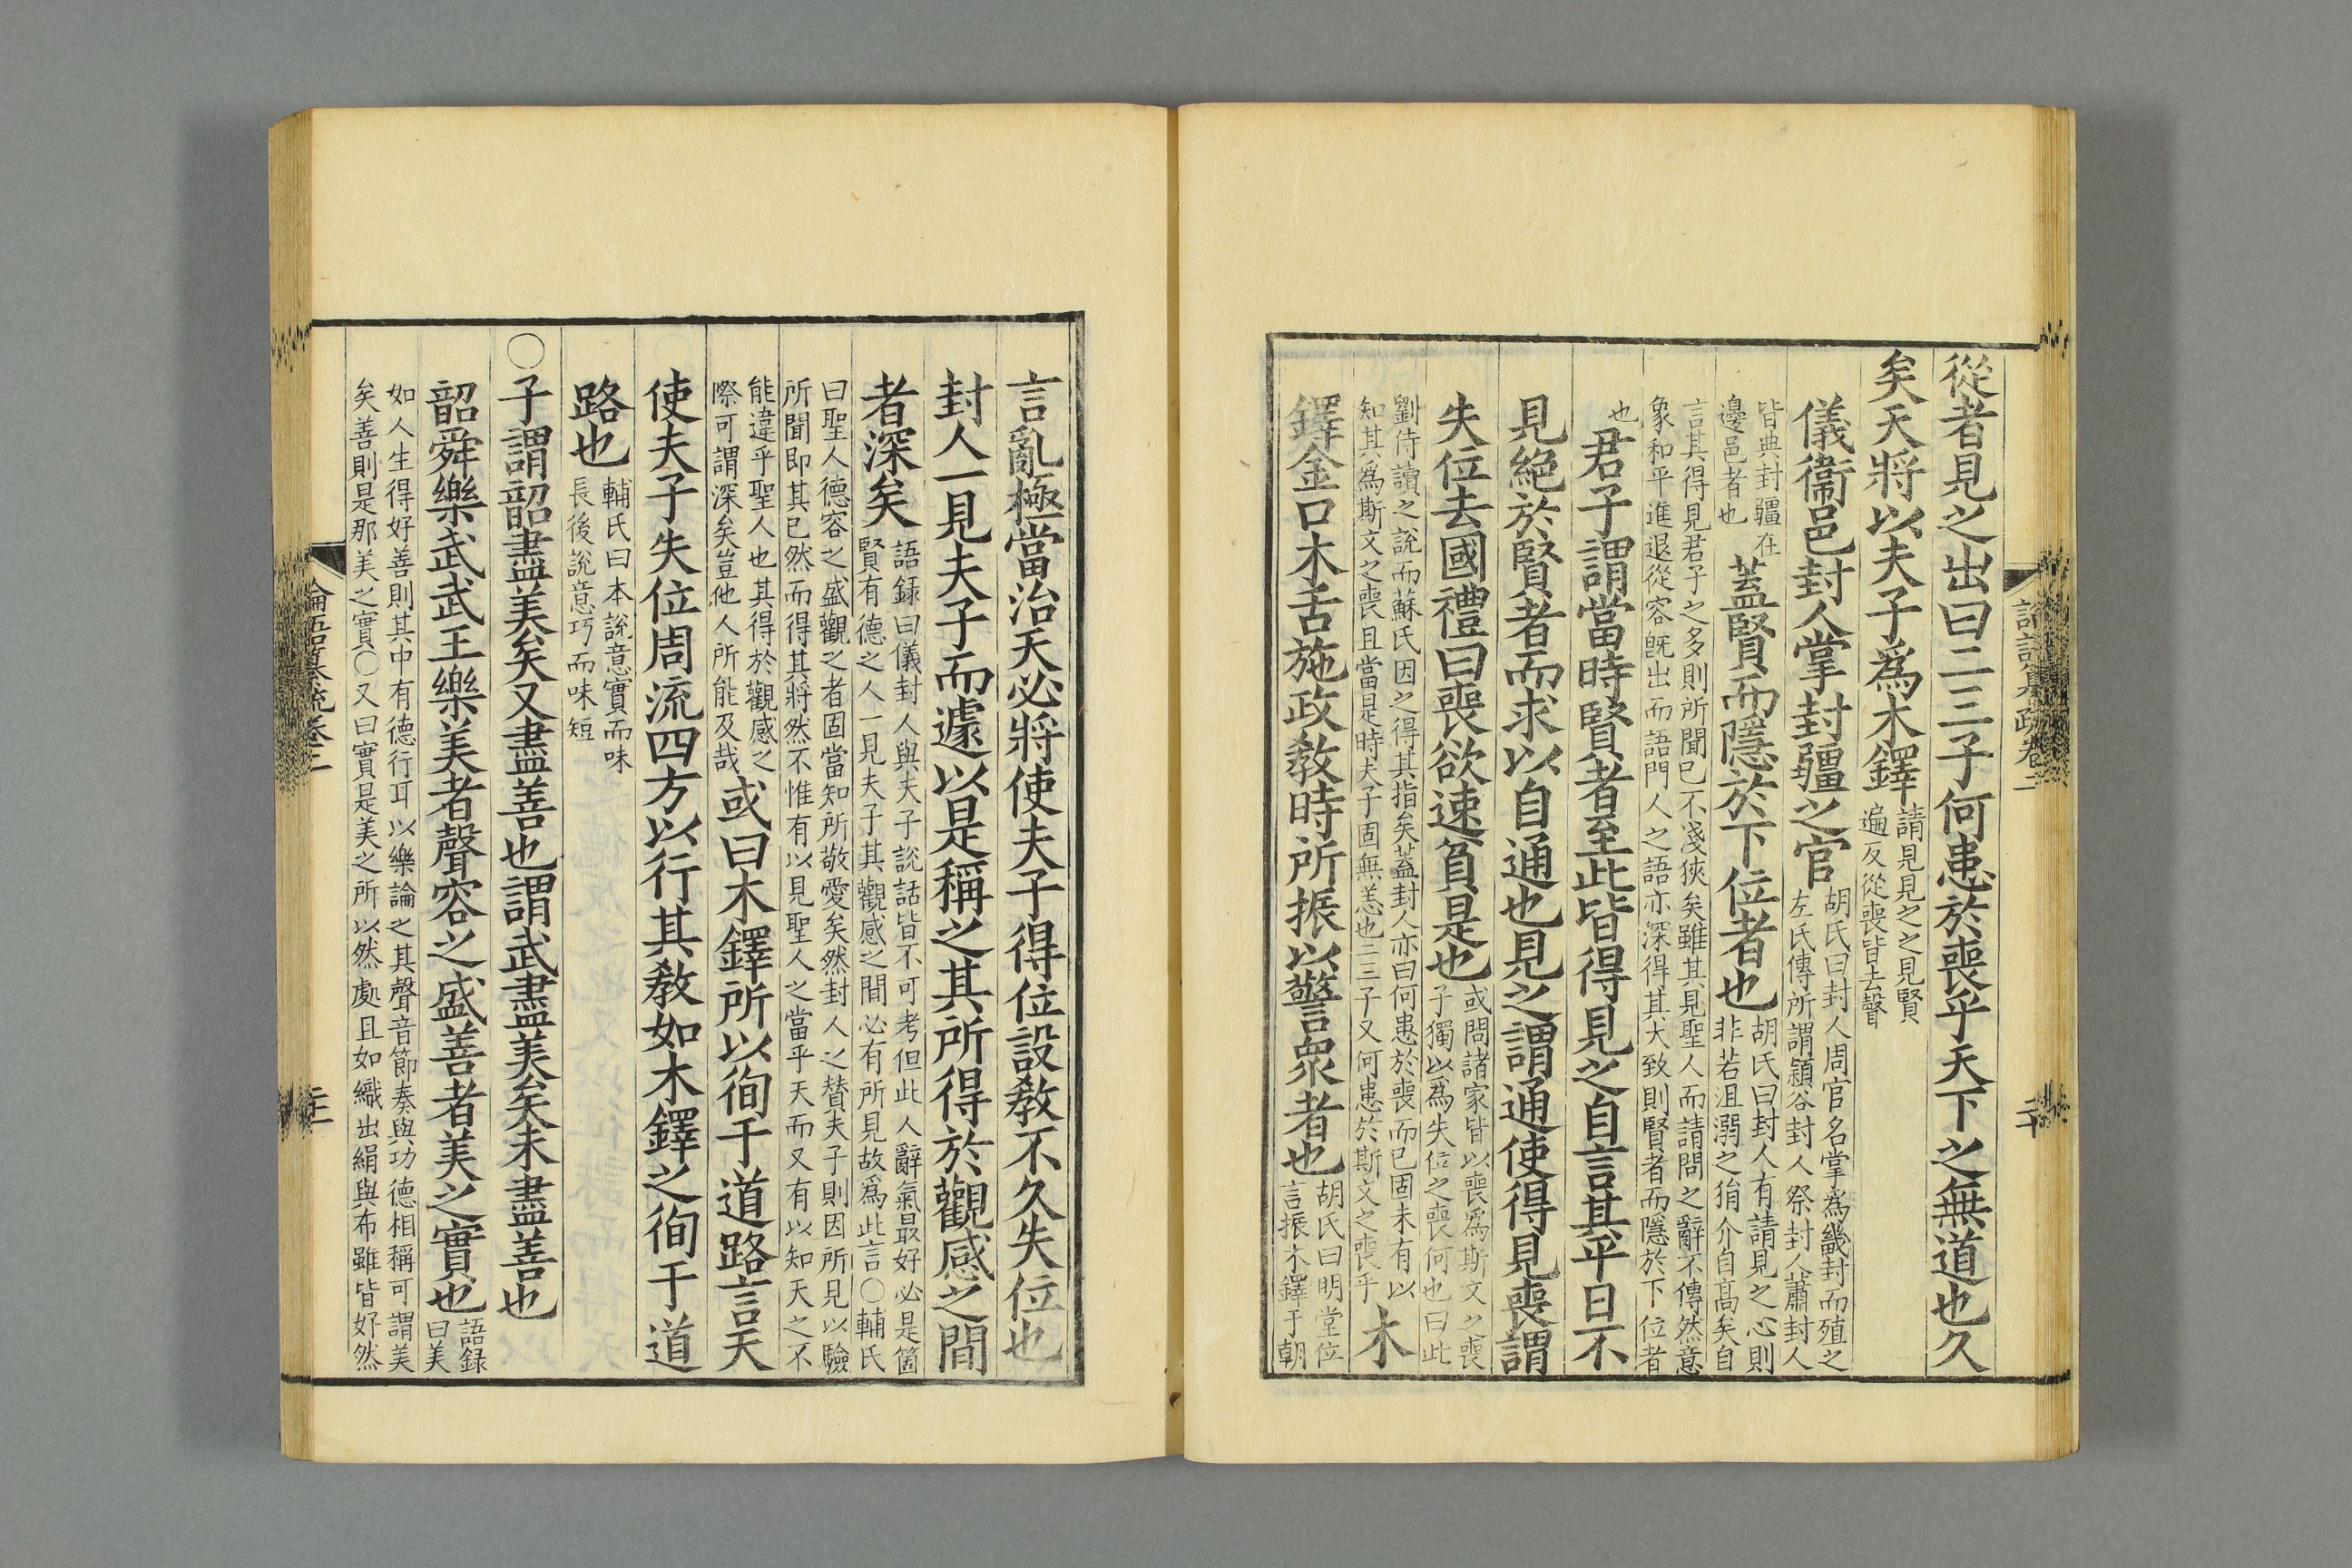 從者見之出曰二三子何患於喪乎天下之無道也久
矣天將以夫子爲木鐸
請見見之之見賢
遍反從喪皆去聲
儀衞邑封人掌封疆之官
胡氏曰封人周官名掌爲畿封而殖之
左氏傳所謂潁谷封人祭封人蕭封人
皆典封疆在
邊邑者也
蓋賢而隱於下位者也
胡氏曰封人有請見之心則
非若沮溺之狷介自高矣自
言其得見君子之多則所聞已不淺狹矣雖其見聖人而請問之辭不傳然意
象和平進退從容旣出而語門人之語亦深得其大致則賢者而隱於下位者
也
君子謂當時賢者至此皆得見之自言其平日不
見絕於賢者而求以自通也見之謂通使得見喪謂
失位去國禮曰喪欲速貧是也
或問諸家皆以喪爲斯文之喪
子獨以爲失位之喪何也曰此
劉侍讀之說而蘇氏因之得其指矣蓋封人亦曰何患於喪而已固未有以
知其爲斯文之喪且當是時夫子固無恙也二三子又何患於斯文之喪乎
木
鐸金口木舌施政敎時所振以警衆者也
胡氏曰明堂位
言振木鐸于朝
言亂極當治天必將使夫子得位設敎不久失位也
封人一見夫子而遽以是稱之其所得於觀感之間
者深矣
語錄曰儀封人與夫子說話皆不可考但此人辭氣最好必是箇
賢有德之人一見夫子其觀感之間必有所見故爲此言○輔氏
曰聖人德容之盛觀之者固當知所敬愛矣然封人之贊夫子則因所見以驗
所聞卽其已然而得其將然不惟有以見聖人之當乎天而又有以知天之不
能違乎聖人也其得於觀感之
際可謂深矣豈他人所能及哉
或曰木鐸所以徇于道路言天
使夫子失位周流四方以行其敎如木鐸之徇于道
路也
輔氏曰本說意實而味
長後說意巧而味短
○子謂韶盡美矣又盡善也謂武盡美矣未盡善也
韶舜樂武武王樂美者聲容之盛善者美之實也
語錄
曰美
如人生得好善則其中有德行耳以樂論之其聲音節奏與功德相稱可謂美
矣善則是那美之實○又曰實是美之所以然處且如織出絹與布雖皆好然
論語纂疏卷二